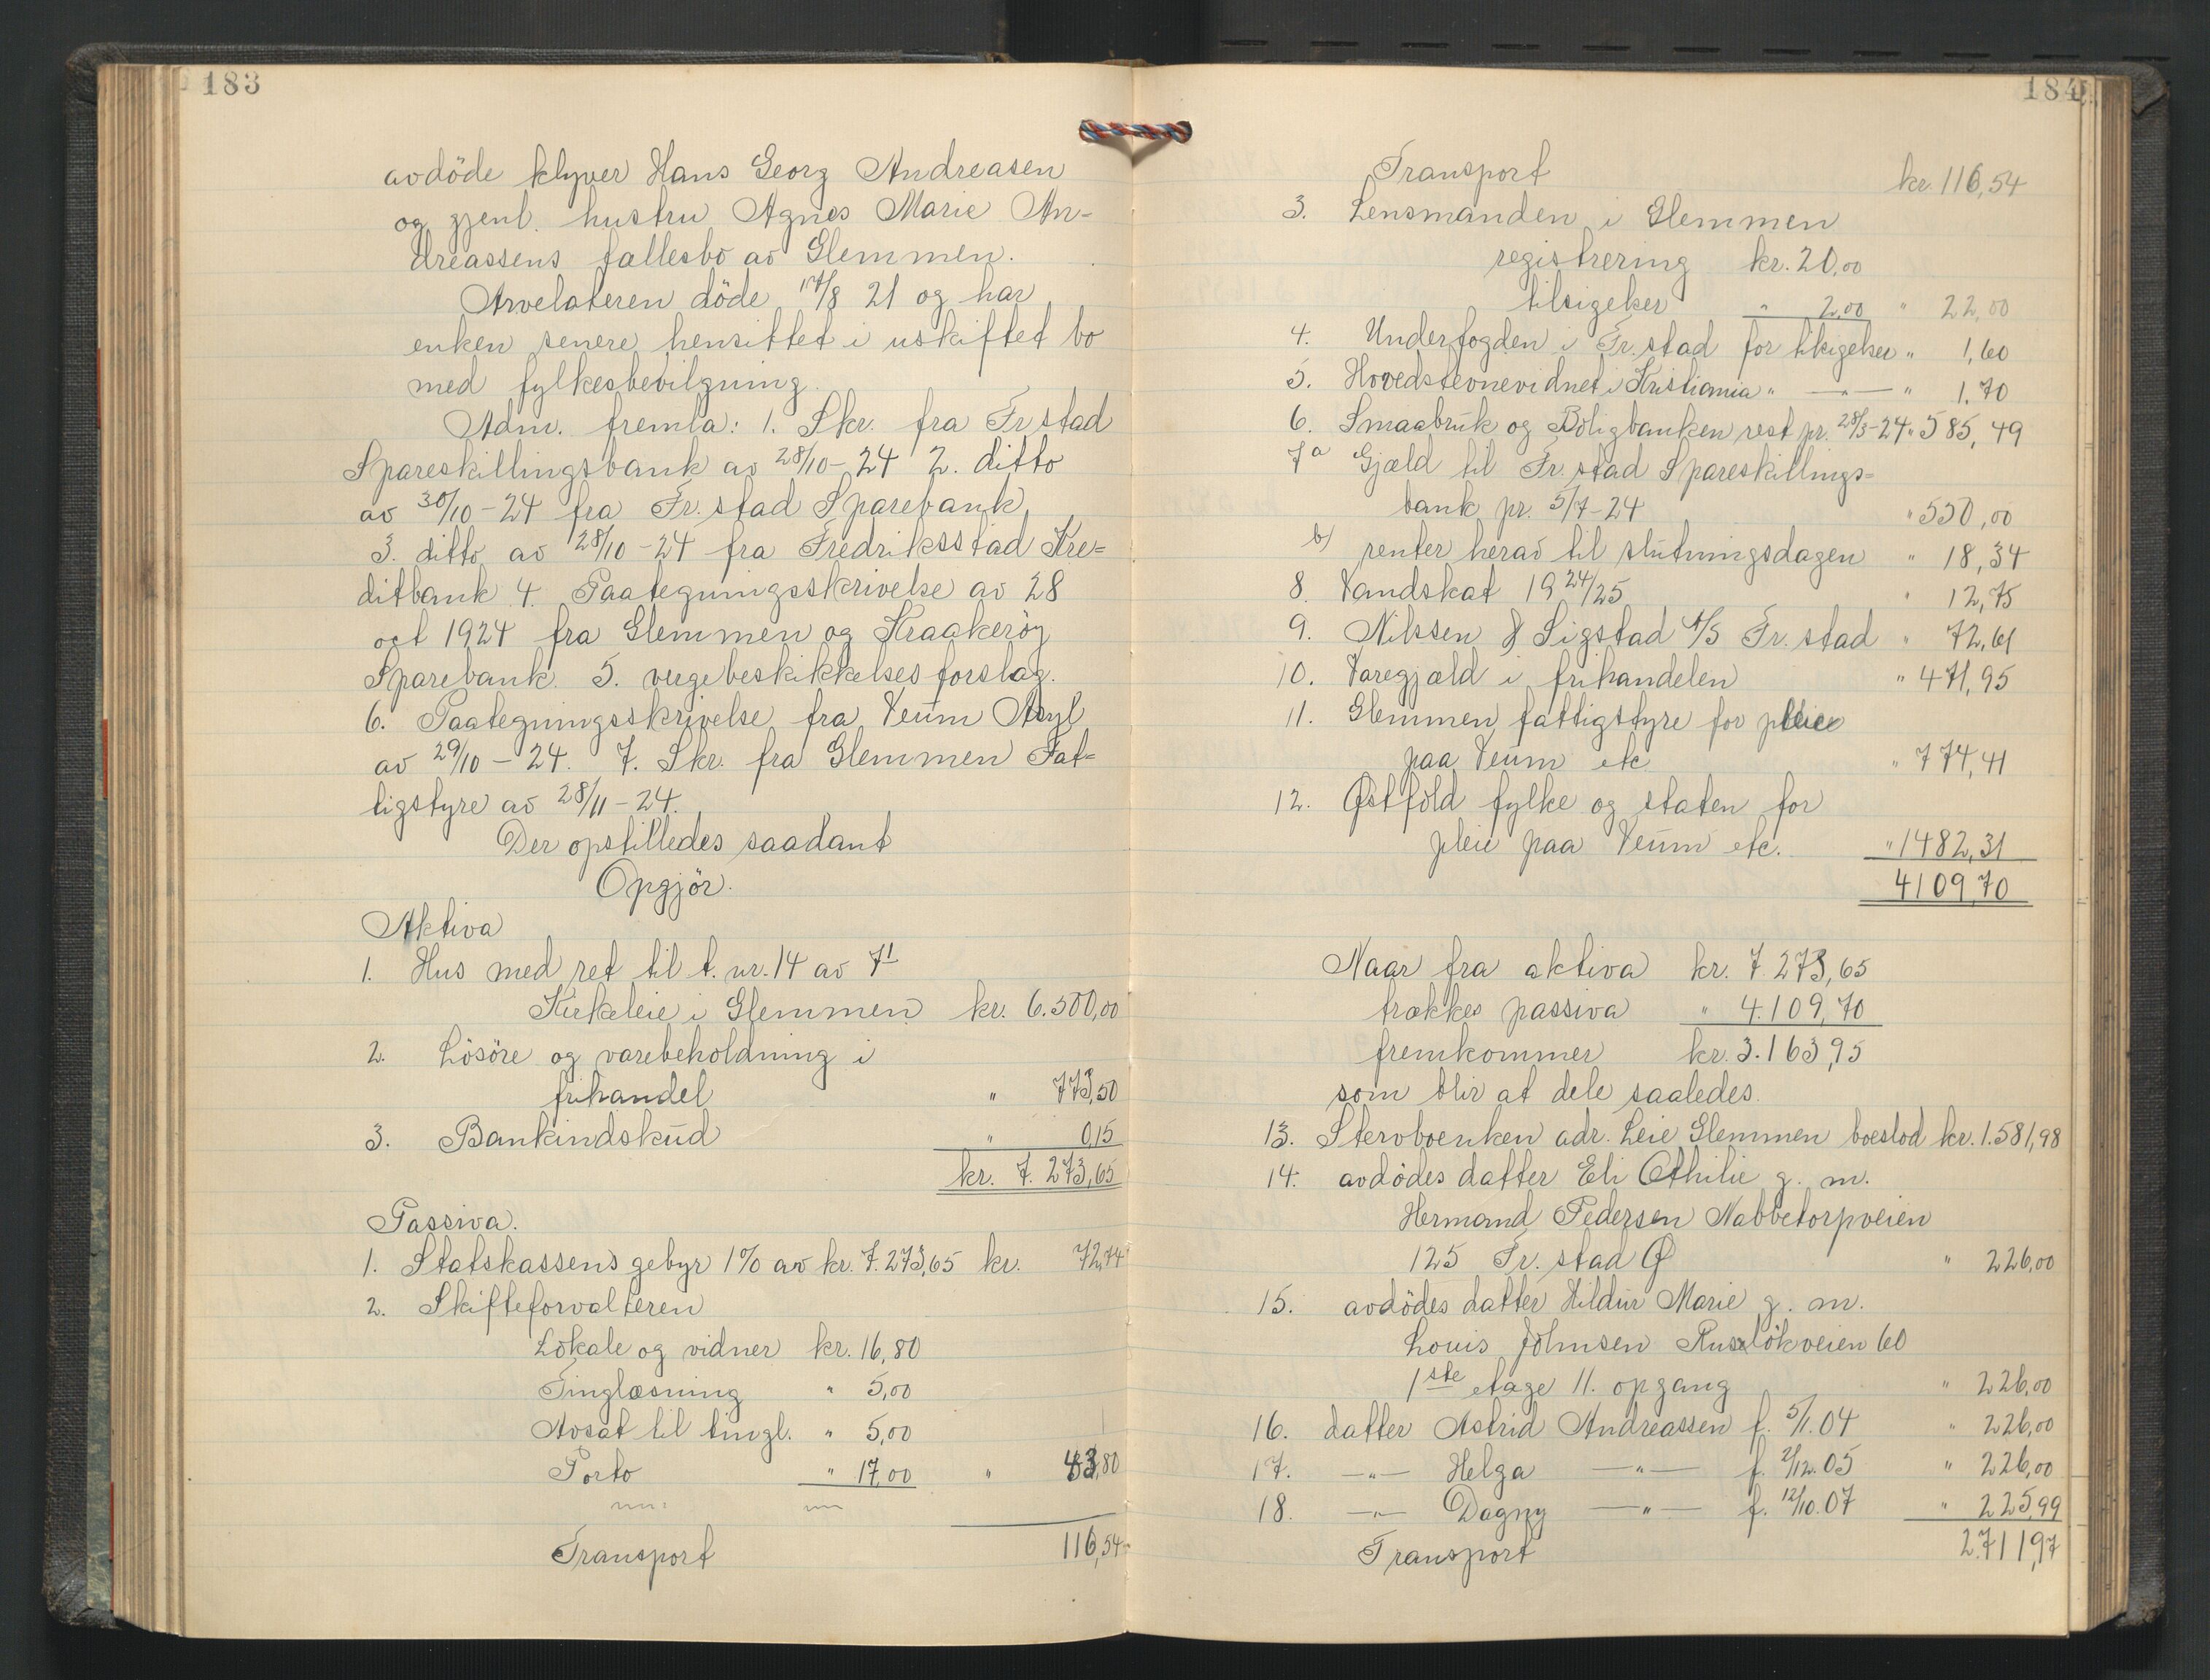 183
avdöde klyver Hans Georg Andreasen
og gjenl. hustru Agnes Marie An-
dreassens fællesbo av Glemmen.
Arvelateren döde 17/8 21 og har
enken senere hensittet i uskiftet bo
med fylkesbevilgning.
Adm. fremla: 1. Skr. fra Frstad
Spareskillingsbank av 28/10-24 2. ditto
av 30/10-24 fra Fr.stad Sparebank,
3. ditto av 28/10-24 fra Fredriksstad Kre=
ditbank 4. Paategningsskrivelse av 28
oct 1924 fra Glemmen og Kraakeröy
Sparebank. 5. vergebeskikkelsesforslag.
6. Paategningsskrivelse fra Veum Asyl
av 29/10-24. 7. Skr. fra Glemmen Fat=
tigstyre av 28/11-24.
Der opstilledes saadant
Opgjör.
Aktiva
1. Hus med ret til t. nr. 14 av 71
Kirkeleie i Glemmen kr. 6.500,00
2. Lösöre og varebeholdning i
frihandel " 773,50
3. Bankindskud " 0,15
kr. 7.273,65
Passiva.
1. Statskassens gebyr 1% av kr. 7.273,65 kr. 72,74
2. Skifteforvalteren
Lokale og vidner kr. 16,80
Tinglæsning " 5,00
Avsat til tingl. " 5,00
Porto " 17,00 " 43,80
Transport 116,54
184
Transport kr. 116,54
3. Lensmanden i Glemmen
registrering kr. 20,00
tilsigelser " 2,00 " 22,00
4. Underfogden i Fr.stad for tilsigelser " 1,60
5. Hovedstevnevidnet i Kristiania " —"— " 1,70
6. Smaabruk og Boligbanken rest pr. 28/3-24 " 585,49
7a Gjæld til Fr.stad Spareskillings=
bank pr. 5/7-24 " 550,00
b) renter herav til slutningsdagen " 18,34
8. Vandskat 1924/25 " 12,75
9. Nilssen & Sigstad A/S Fr.stad " 72,61
10. Varegjæld i frihandelen " 471,95
11. Glemmen fattigstyre for pleie
paa Veum etc. " 774,41
12. Østfold fylke og staten for
pleie paa Veum etc. " 1482,31
4109,70
Naar fra aktiva kr. 7.273,65
trækkes passiva " 4.109,70
fremkommer kr. 3.163,95
som blir at dele saaledes.
13. Stervboenken adr. Leie Glemmen boeslod kr. 1.581,98
14. avdödes datter Eli Othilie g. m.
Hermand Pedersen Nabbetorpveien
125 Fr.stad Ø " 226,00
15. avdödes datter Hildur Marie g. m.
Louis Johnsen Ruseløkveien 60
1ste etage 11. opgang " 226,00
16. datter Astrid Andreassen f. 5/1.04 " 226,00
17. —"— Helga —"— f. 2/12.05 " 226,00
18. —"— Dagny —"— f. 12/10.07 " 225,99
Transport 2711,97